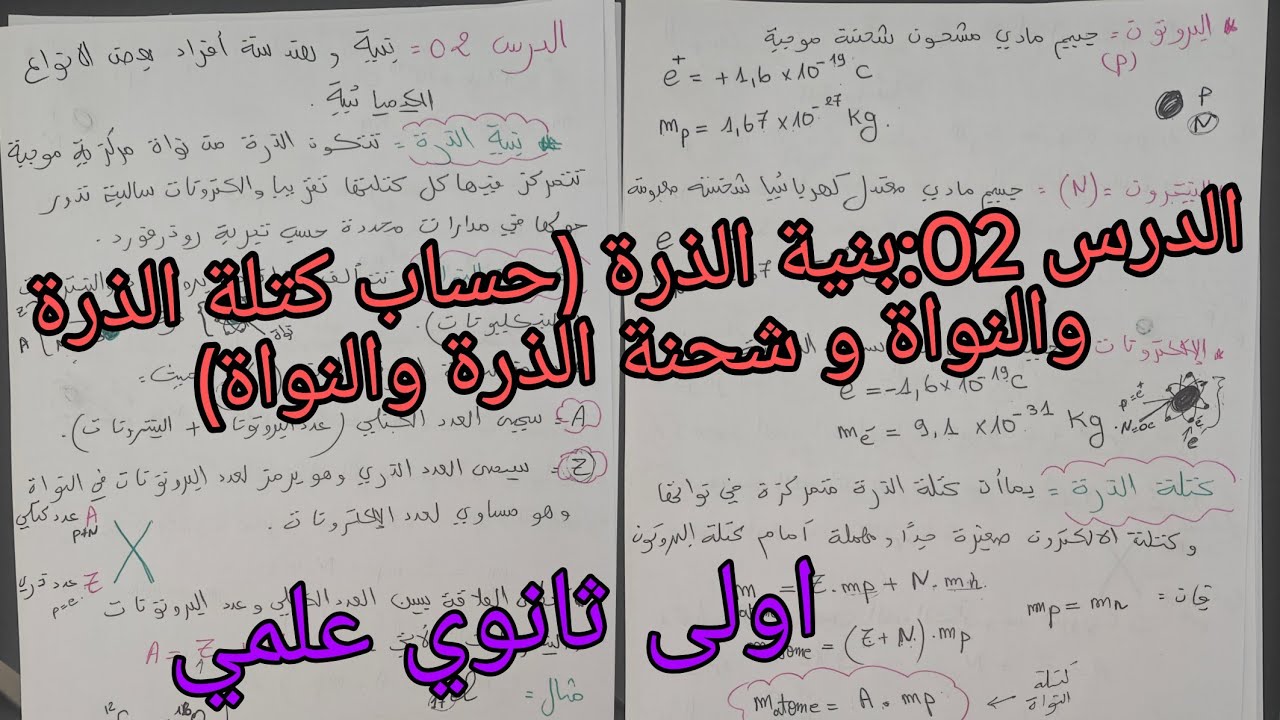 الدرس 02:بنية الذرة (حساب كتلة الذرة
والنواة و شحنة الذرة والنواة)
اولى ثانوي علمي
الدرس 02 = بنية و هندسة أفراد بعض الانواع
الكيميائية .
* بنية الذرة = تتكون الذرة من نواة مركزية موجبة
تتمركز فيها كل كتلتها تقريبا والكترونات سالبة تدور
حولها في مدارات محددة حسب تجربة روذرفورد .
A = يسمى العدد الكتلي (عدد البروتونات + النيترونات).
Z = يسمى العدد الذري وهو يرمز لعدد البروتونات في النواة
وهو مساوي لعدد الإلكترونات .
A عدد كتلي
P+N
X
Z عدد ذري
p=e
العلاقة بين العدد الكتلي وعدد البروتونات
A = Z
مثال =
* البروتون = جسيم مادي مشحون شحنة موجبة
(P)
e⁺ = +1,6 ×10⁻¹⁹ C
mp = 1,67 ×10⁻²⁷ kg.
P
N
النيترون = (N) = جسيم مادي معتدل كهربائيا شحنته معدومة
* الإلكترونات
e = -1,6×10⁻¹⁹ C
mē = 9,1 ×10⁻³¹ Kg
كتلة الذرة = بما أن كتلة الذرة متمركزة في نواتها
وكتلة الالكترون صغيرة جدًا ومهملة أمام كتلة البروتون
فإن =
m Z.mp + N.mn
mp = mn
atome = (Z+N).mp
m atome = A . mp
← كتلة
النواة